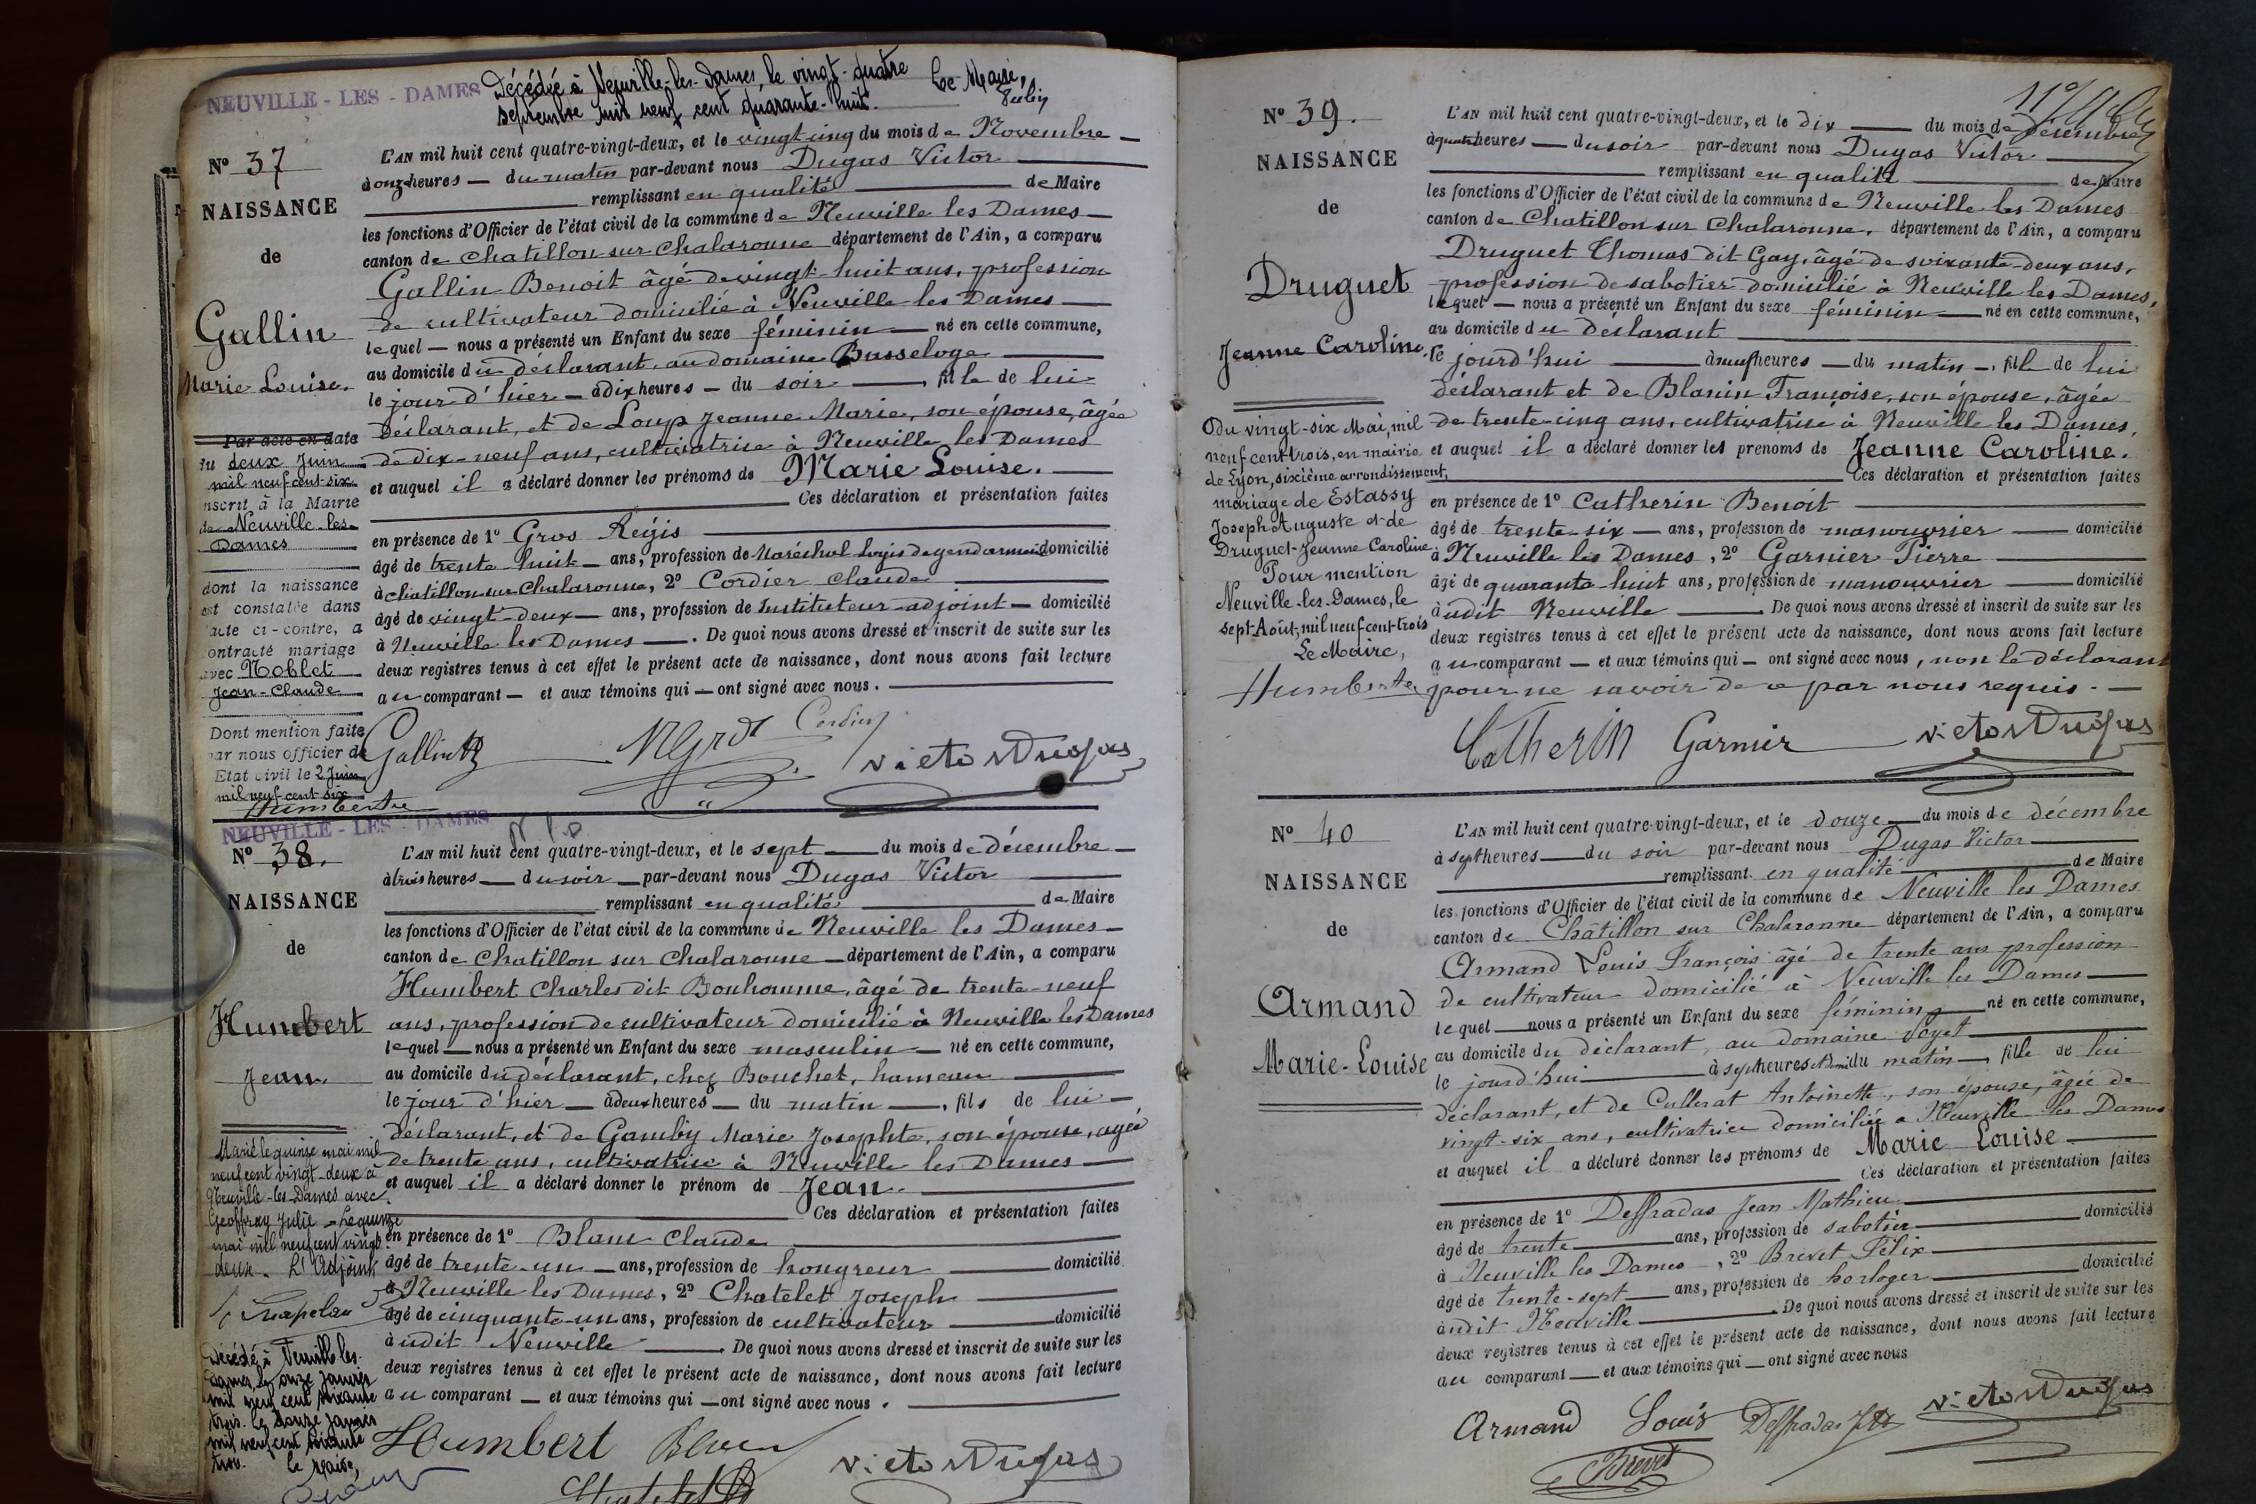 NEUVILLE - LES - DAMES
Décédée à Neuville-les-Dames, le vingt-quatre
septembre mil neuf cent quarante-huit.
Le Maire,
N° 37
NAISSANCE
de
Gallin
Marie Louise.
Par acte en date
du deux Juin
mil neuf cent six
inscrit à la Mairie
de Neuville-les-
Dames
dont la naissance
est constatée dans
l'acte ci-contre, a
contracté mariage
avec Noblet
Jean-Claude
Dont mention faite
par nous officier de
Etat civil le 2 Juin
mil neuf cent six
Humberte
L'AN mil huit cent quatre-vingt-deux, et le vingt cinq du mois de Novembre
à onze heures du matin par-devant nous Dugas Victor
remplissant en qualité de Maire
les fonctions d'Officier de l'état civil de la commune de Neuville les Dames
canton de Chatillon sur Chalaronne département de l'Ain, a comparu
Gallin Benoit âgé de vingt-huit ans, profession
de cultivateur domicilié à Neuville les Dames
lequel nous a présenté un Enfant du sexe féminin né en cette commune,
au domicile du déclarant, au domaine Busseloge
le jour d'hier à dix heures du soir, fille de lui
déclarant, et de Loup Jeanne Marie, son épouse, âgée
de dix-neuf ans, cultivatrice à Neuville les Dames
et auquel il a déclaré donner les prénoms de Marie Louise.
Ces déclaration et présentation faites
en présence de 1° Gros Régis
âgé de trente huit ans, profession de Maréchal logis de gendarmerie domicilié
à Chatillon sur Chalaronne, 2° Cordier Claude
âgé de vingt-deux ans, profession de Instituteur-adjoint domicilié
à Neuville les Dames. De quoi nous avons dressé et inscrit de suite sur les
deux registres tenus à cet effet le présent acte de naissance, dont nous avons fait lecture
au comparant et aux témoins qui ont signé avec nous.
Gallin Cordier
Victor Dugas
NEUVILLE - LES - DAMES
N° 38.
NAISSANCE
de
Humbert
Jean.
Marié le quinze mai mil
neuf cent vingt-deux à
Neuville-les-Dames avec
Geoffray Julie - Le quinze
mai mil neuf cent vingt
deux. L'Adjoint
Décédé à Neuville les
Dames, le onze janvier
mil neuf cent soixante
trois. Le douze janvier
mil neuf cent soixante
trois. Le Maire,
L'AN mil huit cent quatre-vingt-deux, et le sept du mois de décembre
à trois heures du soir par-devant nous Dugas Victor
remplissant en qualité de Maire
les fonctions d'Officier de l'état civil de la commune de Neuville les Dames
canton de Chatillon sur Chalaronne département de l'Ain, a comparu
Humbert Charles dit Bonhomme, âgé de trente-neuf
ans, profession de cultivateur domicilié à Neuville les Dames
lequel nous a présenté un Enfant du sexe masculin né en cette commune,
au domicile du déclarant, chez Bouchet, hameau
le jour d'hier à deux heures du matin, fils de lui
déclarant, et de Gamby Marie Josephte, son épouse, agée
de trente ans, cultivatrice à Neuville les Dames
et auquel il a déclaré donner le prénom de Jean.
Ces déclaration et présentation faites
en présence de 1° Blanc Claude
âgé de trente-un ans, profession de hongreur domicilié
à Neuville les Dames, 2° Chatelet Joseph
âgé de cinquante-un ans, profession de cultivateur domicilié
à udit Neuville. De quoi nous avons dressé et inscrit de suite sur les
deux registres tenus à cet effet le présent acte de naissance, dont nous avons fait lecture
au comparant et aux témoins qui ont signé avec nous.
Humbert Blanc
Victor Dugas
N° 39.
NAISSANCE
de
Druguet
Jeanne Caroline.
Du vingt-six Mai, mil
neuf cent trois, en mairie
de Lyon, sixième arrondissement,
mariage de Estassy
Joseph Auguste et de
Druguet Jeanne Caroline
Pour mention
Neuville-les-Dames, le
sept Août, mil neuf cent trois
Le Maire,
Humberte
L'AN mil huit cent quatre-vingt-deux, et le dix du mois de décembre
à quatre heures du soir par-devant nous Dugas Victor
remplissant en qualité de Maire
les fonctions d'Officier de l'état civil de la commune de Neuville les Dames
canton de Chatillon sur Chalaronne, département de l'Ain, a comparu
Druguet Thomas dit Gay, âgé de soixante-deux ans,
profession de sabotier domicilié à Neuville les Dames,
lequel nous a présenté un Enfant du sexe féminin né en cette commune,
au domicile du déclarant
le jourd'hui à neuf heures du matin, fille de lui
déclarant et de Blanin Françoise, son épouse, âgée
de trente-cinq ans, cultivatrice à Neuville les Dames,
et auquel il a déclaré donner les prenoms de Jeanne Caroline.
Ces déclaration et présentation faites
en présence de 1° Catherin Benoit
âgé de trente-six ans, profession de manouvrier domicilié
à Neuville les Dames, 2° Garnier Pierre
âgé de quarante-huit ans, profession de manouvrier domicilié
à udit Neuville. De quoi nous avons dressé et inscrit de suite sur les
deux registres tenus à cet effet le présent acte de naissance, dont nous avons fait lecture
au comparant et aux témoins qui ont signé avec nous, non le déclarant
pour ne savoir de ce par nous requis.
Catherin Garnier Victor Dugas
N° 40
NAISSANCE
de
Armand
Marie-Louise
L'AN mil huit cent quatre-vingt-deux, et le douze du mois de décembre
à sept heures du soir par-devant nous Dugas Victor
remplissant en qualité de Maire
les fonctions d'Officier de l'état civil de la commune de Neuville les Dames
canton de Châtillon sur Chalaronne département de l'Ain, a comparu
Armand Louis François âgé de trente ans profession
de cultivateur domicilié à Neuville les Dames
lequel nous a présenté un Enfant du sexe féminin né en cette commune,
au domicile du déclarant, au domaine Poyet
le jourd'hui à sept heures et demi du matin, fille de lui
déclarant, et de Cullerat Antoinette, son épouse, âgée de
vingt-six ans, cultivatrice domiciliée à Neuville les Dames
et auquel il a déclaré donner les prénoms de Marie Louise
Ces déclaration et présentation faites
en présence de 1° Deffradas Jean Mathieu
âgé de trente ans, profession de sabotier domicilié
à Neuville les Dames, 2° Brevet Félix
âgé de trente-sept ans, profession de horloger domicilié
à udit Neuville. De quoi nous avons dressé et inscrit de suite sur les
deux registres tenus à cet effet le présent acte de naissance, dont nous avons fait lecture
au comparant et aux témoins qui ont signé avec nous
Armand Louis Deffradas Victor Dugas
Brevet